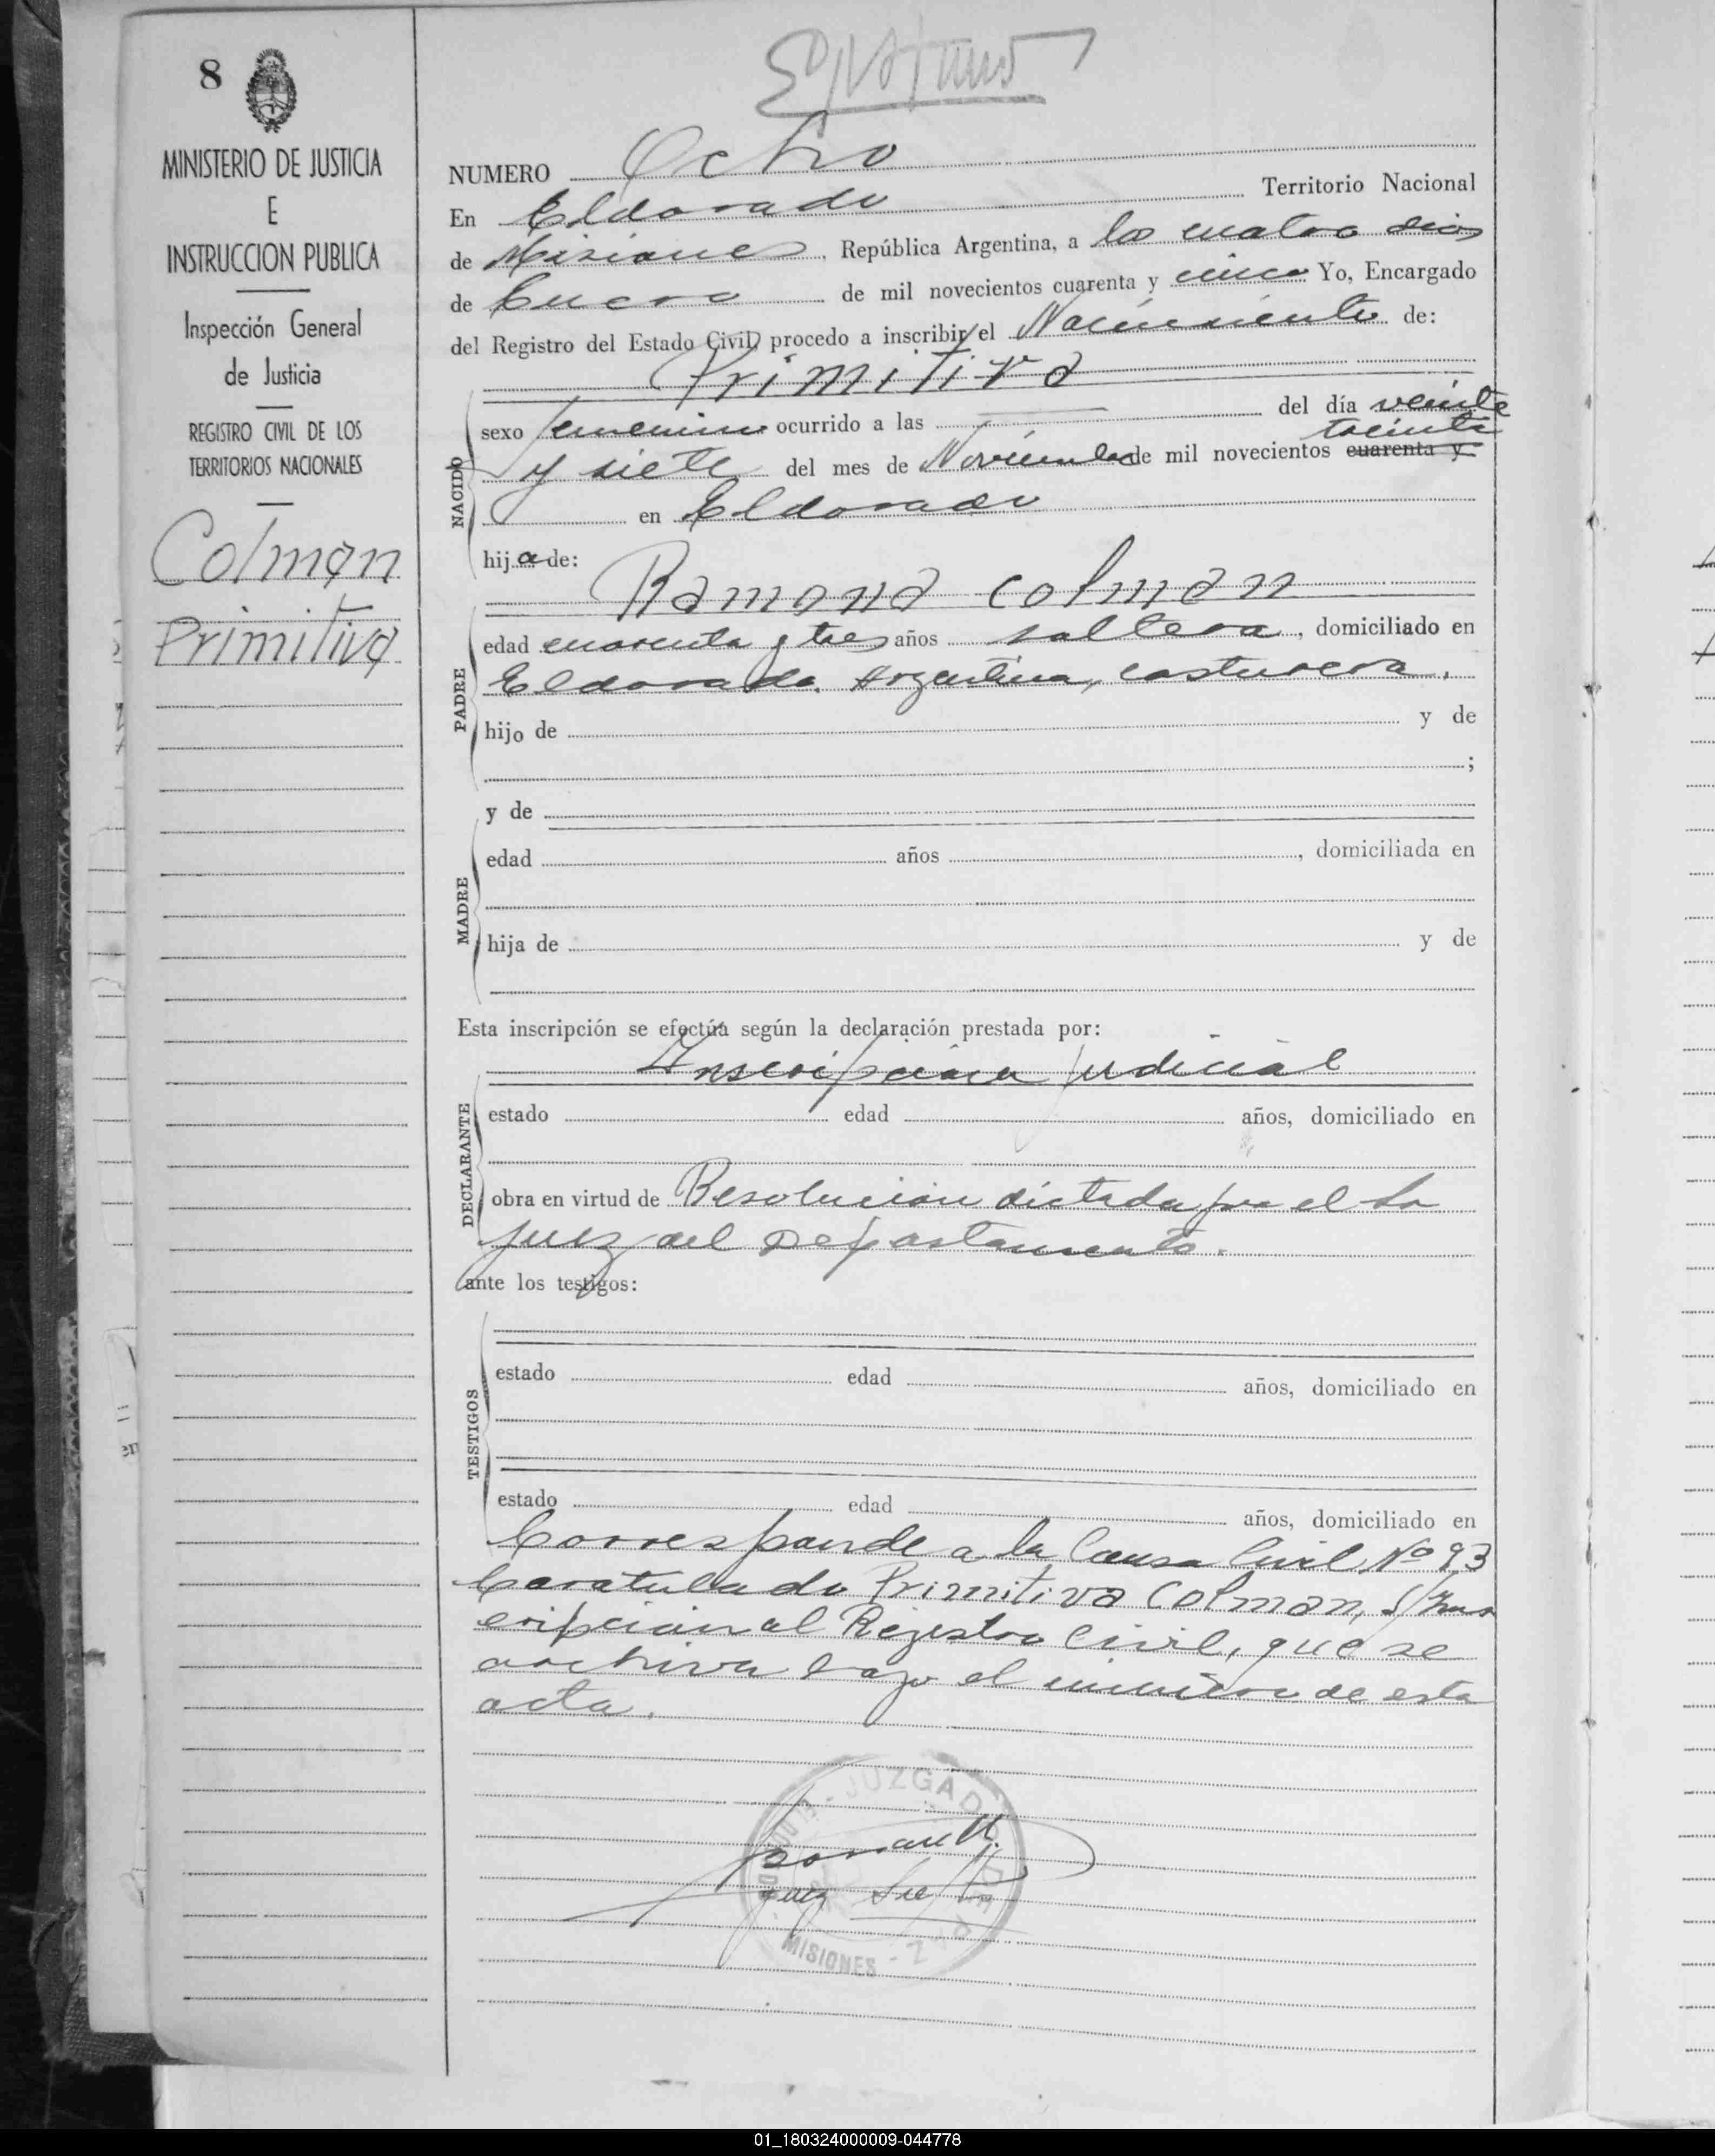 8
MINISTERIO DE JUSTICIA
E
INSTRUCCION PUBLICA
Inspección General
de Justicia
REGISTRO CIVIL DE LOS
TERRITORIOS NACIONALES
Colman
Primitiva
NUMERO Ocho
En Eldorado Territorio Nacional
de Misiones, República Argentina, a los cuatro dias
de Enero de mil novecientos cuarenta y cinco Yo, Encargado
del Registro del Estado Civil, procedo a inscribir el Nacimiento de:
Primitiva
NACIDO
sexo femenino ocurrido a las del día veinte
y siete del mes de Noviembre de mil novecientos treinta cuarenta y
en Eldorado
hija de:
Ramona Colman
PADRE
edad cuarenta y tres años soltera, domiciliado en
Eldorado. Argentina, costurera.
hijo de y de
;
y de
MADRE
edad años , domiciliada en
hija de y de
Esta inscripción se efectúa según la declaración prestada por:
Inscripción judicial
DECLARANTE
estado edad años, domiciliado en
obra en virtud de Resolución dictada por el Sr
Juez del Departamento.
ante los testigos:
TESTIGOS
estado edad años, domiciliado en
estado edad años, domiciliado en
Corresponde a la Causa Civil Nº 93
Caratulado Primitiva Colman, s/Ins
cripción al Registro Civil, que se
archiva bajo el número de esta
acta.
JUZGADO DE PAZ - MISIONES
Juez
01_180324000009-044778